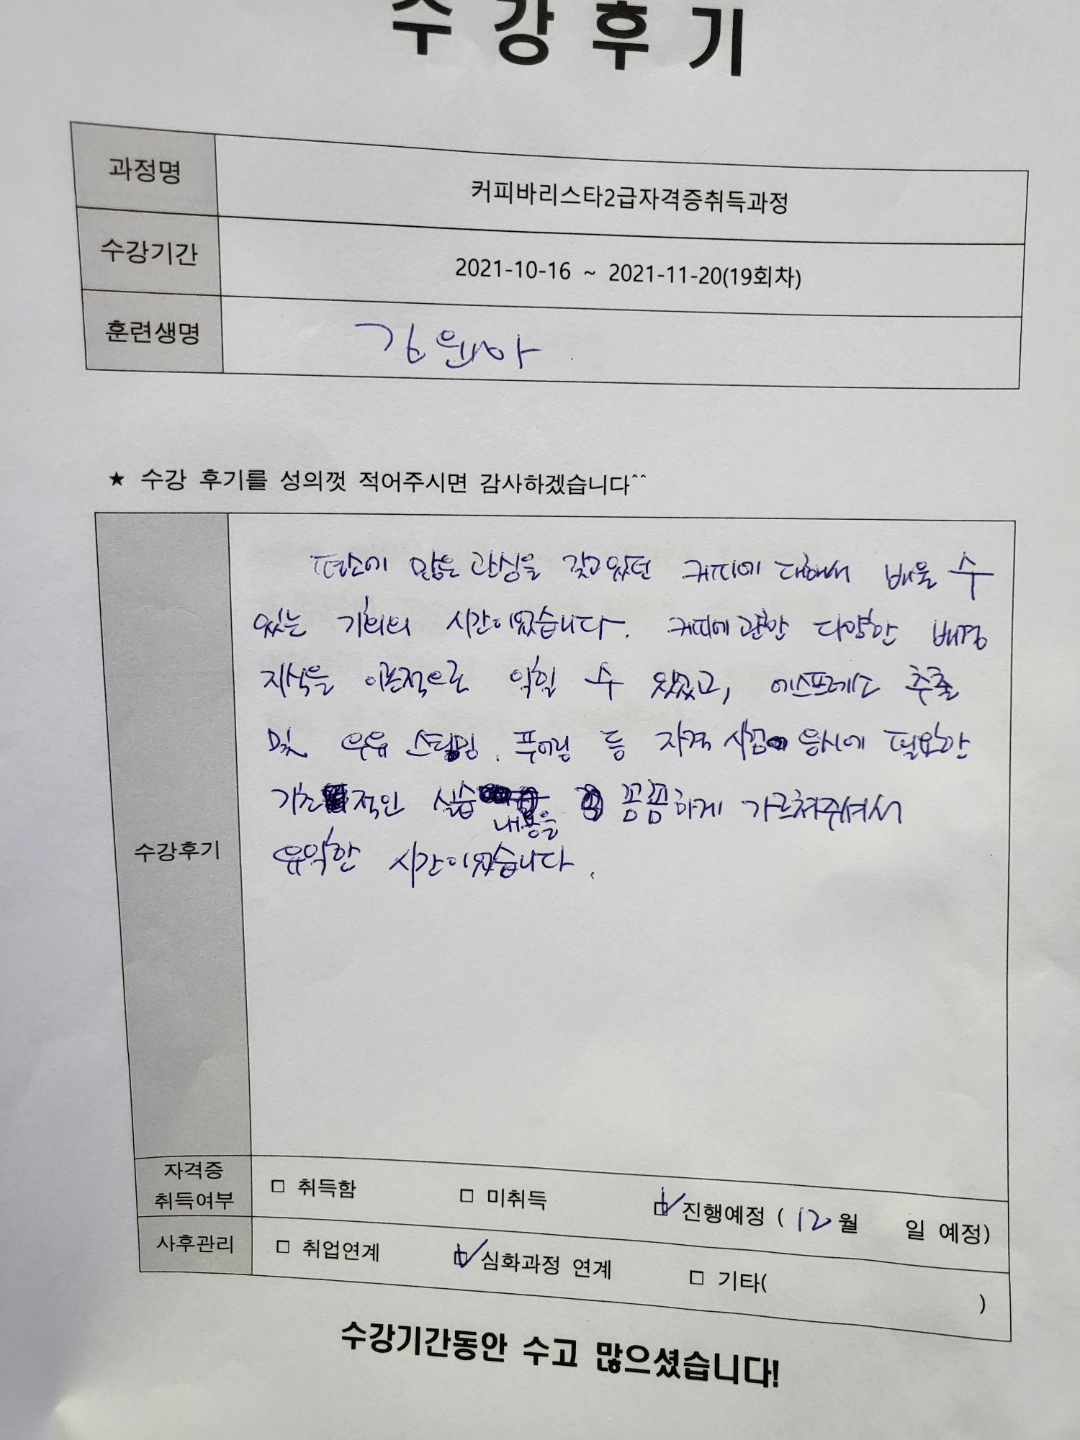 수강후기
과정명 커피바리스타2급자격증취득과정
수강기간 2021-10-16 ~ 2021-11-20(19회차)
훈련생명 김윤아
★ 수강 후기를 성의껏 적어주시면 감사하겠습니다^^
평소에 많은 관심을 갖고있던 커피에 대해서 배울 수
있는 기회의 시간이었습니다. 커피에 관한 다양한 배경
지식을 이론적으로 익힐 수 있었고, 에스프레소 추출
및 우유 스티밍, 푸어링 등 자격 시험 응시에 필요한
기초적인 실습 내용을 꼼꼼하게 가르쳐주셔서
수강후기
유익한 시간이었습니다.
자격증 취득여부 □ 취득함 □ 미취득 ☑ 진행예정 ( 12월 일 예정)
사후관리 □ 취업연계 ☑ 심화과정 연계 □ 기타( )
수강기간동안 수고 많으셨습니다!